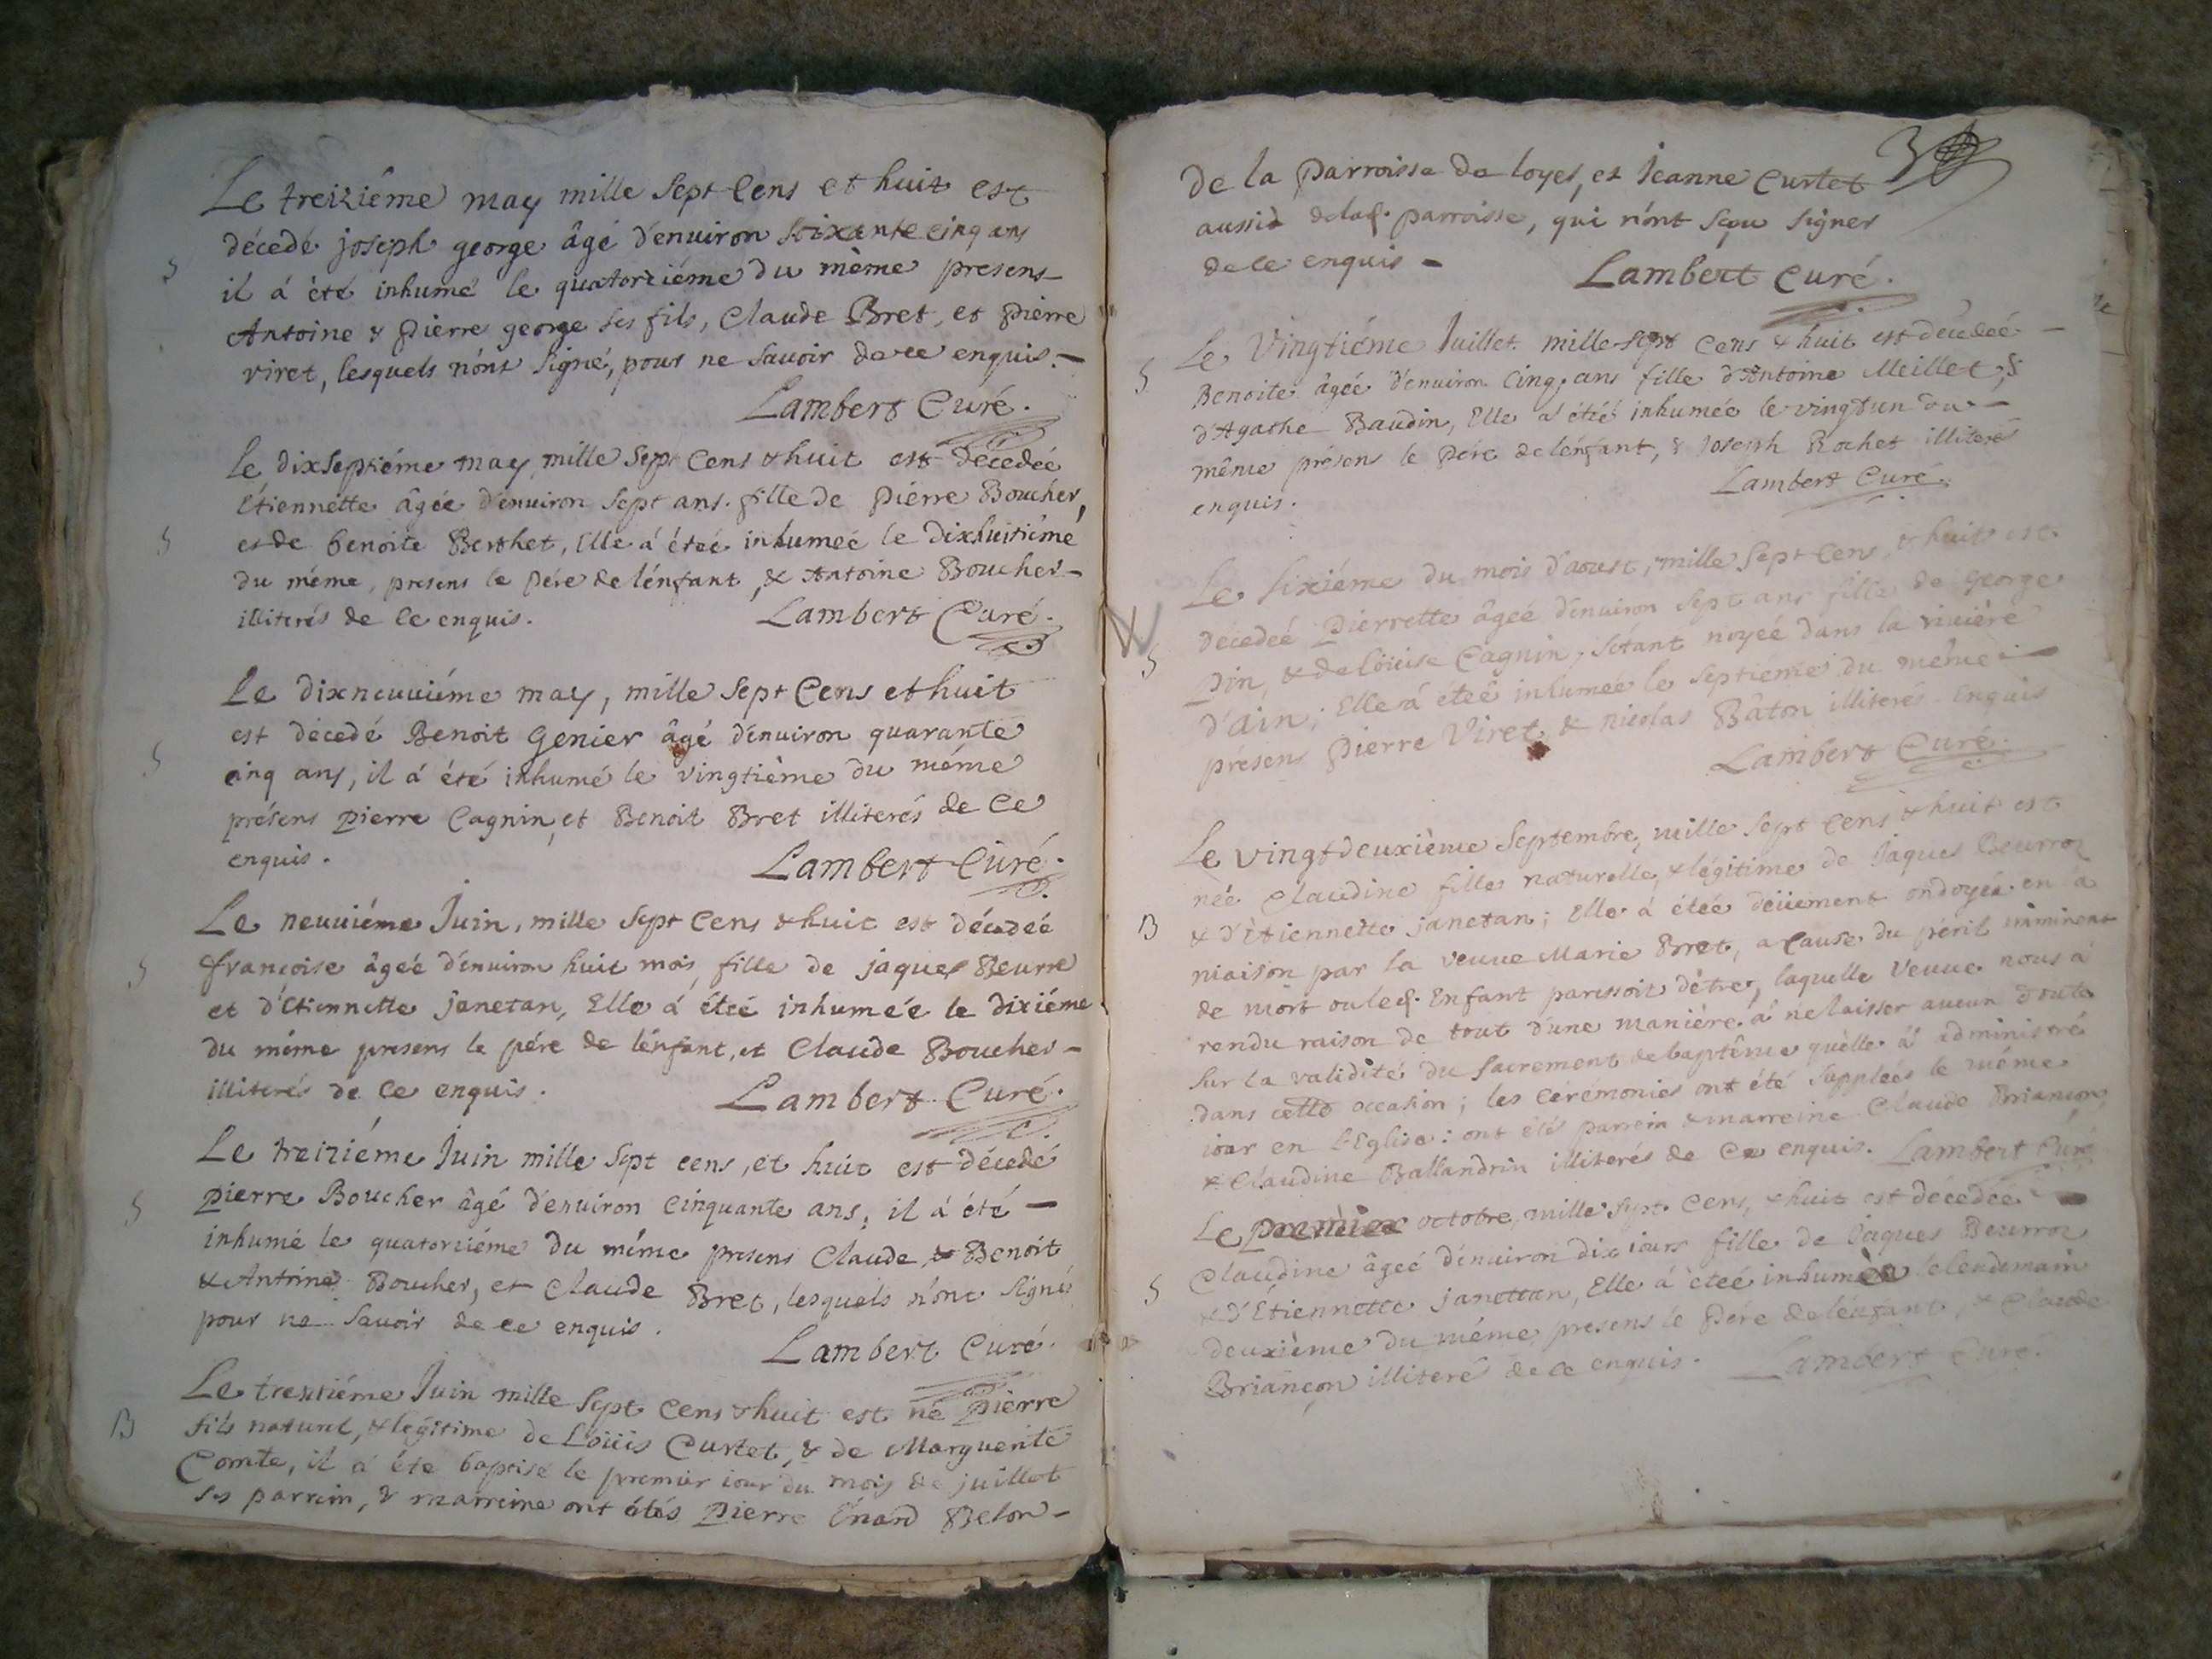 Le treiziéme may mille Sept Cens et huit est
décedé joseph george âgé d'enuiron Soixante cinq ans
S
il á été inhumé le quatorziéme du mème presens
Antoine & pierre george ses fils, Claude Bret, et pierre
viret, lesquels n'ónt Signé, pour ne Savoir de ce enquis.
Lambert Curé.
le dixseptiéme may mille Sept Cens & huit est décedée
Etiennette âgée d'enuiron Sept ans. fille de pierre Boucher,
S
et de benoite Berthet, Elle á éteé inhumeé le dixhuitiéme
du méme, presens le pére de lénfant, & Antoine Boucher
illiterés de Ce enquis.
Lambert Curé.
Le dixneuuiéme may, mille Sept Cens et huit
est décedé Benoit Genier âgé d'enuiron quarante
S
cinq ans, il á été inhumé le vingtiéme du méme
présens pierre Cagnin, et Benoit Bret illiterés de Ce
enquis.
Lambert Curé.
Le neuuiéme Juin, mille Sept Cens & huit est décedeé
S
françoise âgeé d'enuiron huit mois, fille de jaques Beurre
et d'Etiennette janetan, Elle á éteé inhumeé le dixiéme
du méme presens le pére de lénfant, et Claude Boucher
illiterés de Ce enquis.
Lambert Curé.
Le treiziéme Juin mille Sept cens, et huit est décedé
S
pierre Boucher âgé d'enuiron Cinquante ans, il á été
inhumé le quatorziéme du méme presens Claude & Benoit
& Antoine Boucher, et Claude Bret, lesquels n'ónt Signé
pour ne Savoir de ce enquis.
Lambert Curé.
Le trentiéme Juin mille Sept Cens & huit est né pierre
B
fils naturel, & legitime de Loüis Curtet, & de Marguerite
Comte, il á été baptisé le premier iour du mois de juillet
ses parrein, & marreine ont étés pierre Énard Belon-
3
de la parroisse de loyes, et Jeanne Curtet
aussi de lad. parroisse, qui n'ónt Sçeu Signer
de Ce enquis
Lambert Curé.
S
Le Vingtiéme Juillet mille Sept Cens & huit est décedeé
Benoite âgeé d'enuiron Cinq ans fille d'Antoine Meillet, &
d'Agathe Baudin, Elle á éteé inhumée le vingtun du
même présens le pére de lénfant, & Joseph Rochet illiterés
enquis.
Lambert Curé.
Le Sixiéme du mois d'aoust, mille Sept Cens, & huit est
décedeé Pierrette âgeé d'enuiron Sept ans fille de George
S
Pin, & de loüise Cagnin, sétant noyeé dans la riuiére
d'Ain; Elle á éteé inhumée le Septieme du méme
présens pierre Viret & nicolas Bâton illiterés Enquis
Lambert Curé.
Le vingtdeuxième Septembre, mille Sept Cens & huit est
née Claudine fille naturelle, & légitime de Jaques Beurroz
B
& d'Étiennette janetan; Elle á éteé deüement ondoyée en la
maison par la veuue Marie Bret, a Cause du péril imminent
de mort ou led. Enfant paressoit d'étre, laquelle Veuue nous á
rendu raison de tout d'une maniére á ne laisser aucun doute
Sur la validité du Sacrement de baptême quélle á administré
dans cette occasion; les Cérémonies ont été Suppleés le méme
iour en l'Eglise: ont étés parrein & marreine Claude Briançon,
& Claudine Ballandrin illiterés de Ce enquis. Lambert Curé
Le premier octobre, mille Sept Cens, & huit est décedeé
Claudine âgeé d'enuiron dix iours fille de Jaques Beurroz
S
& d'Étiennette janettan, Elle á éteé inhumée le lendemain
deuxième du méme, presens le Pére de lénfant, & Claude
Briançon illiteré de Ce enquis. Lambert Curé.